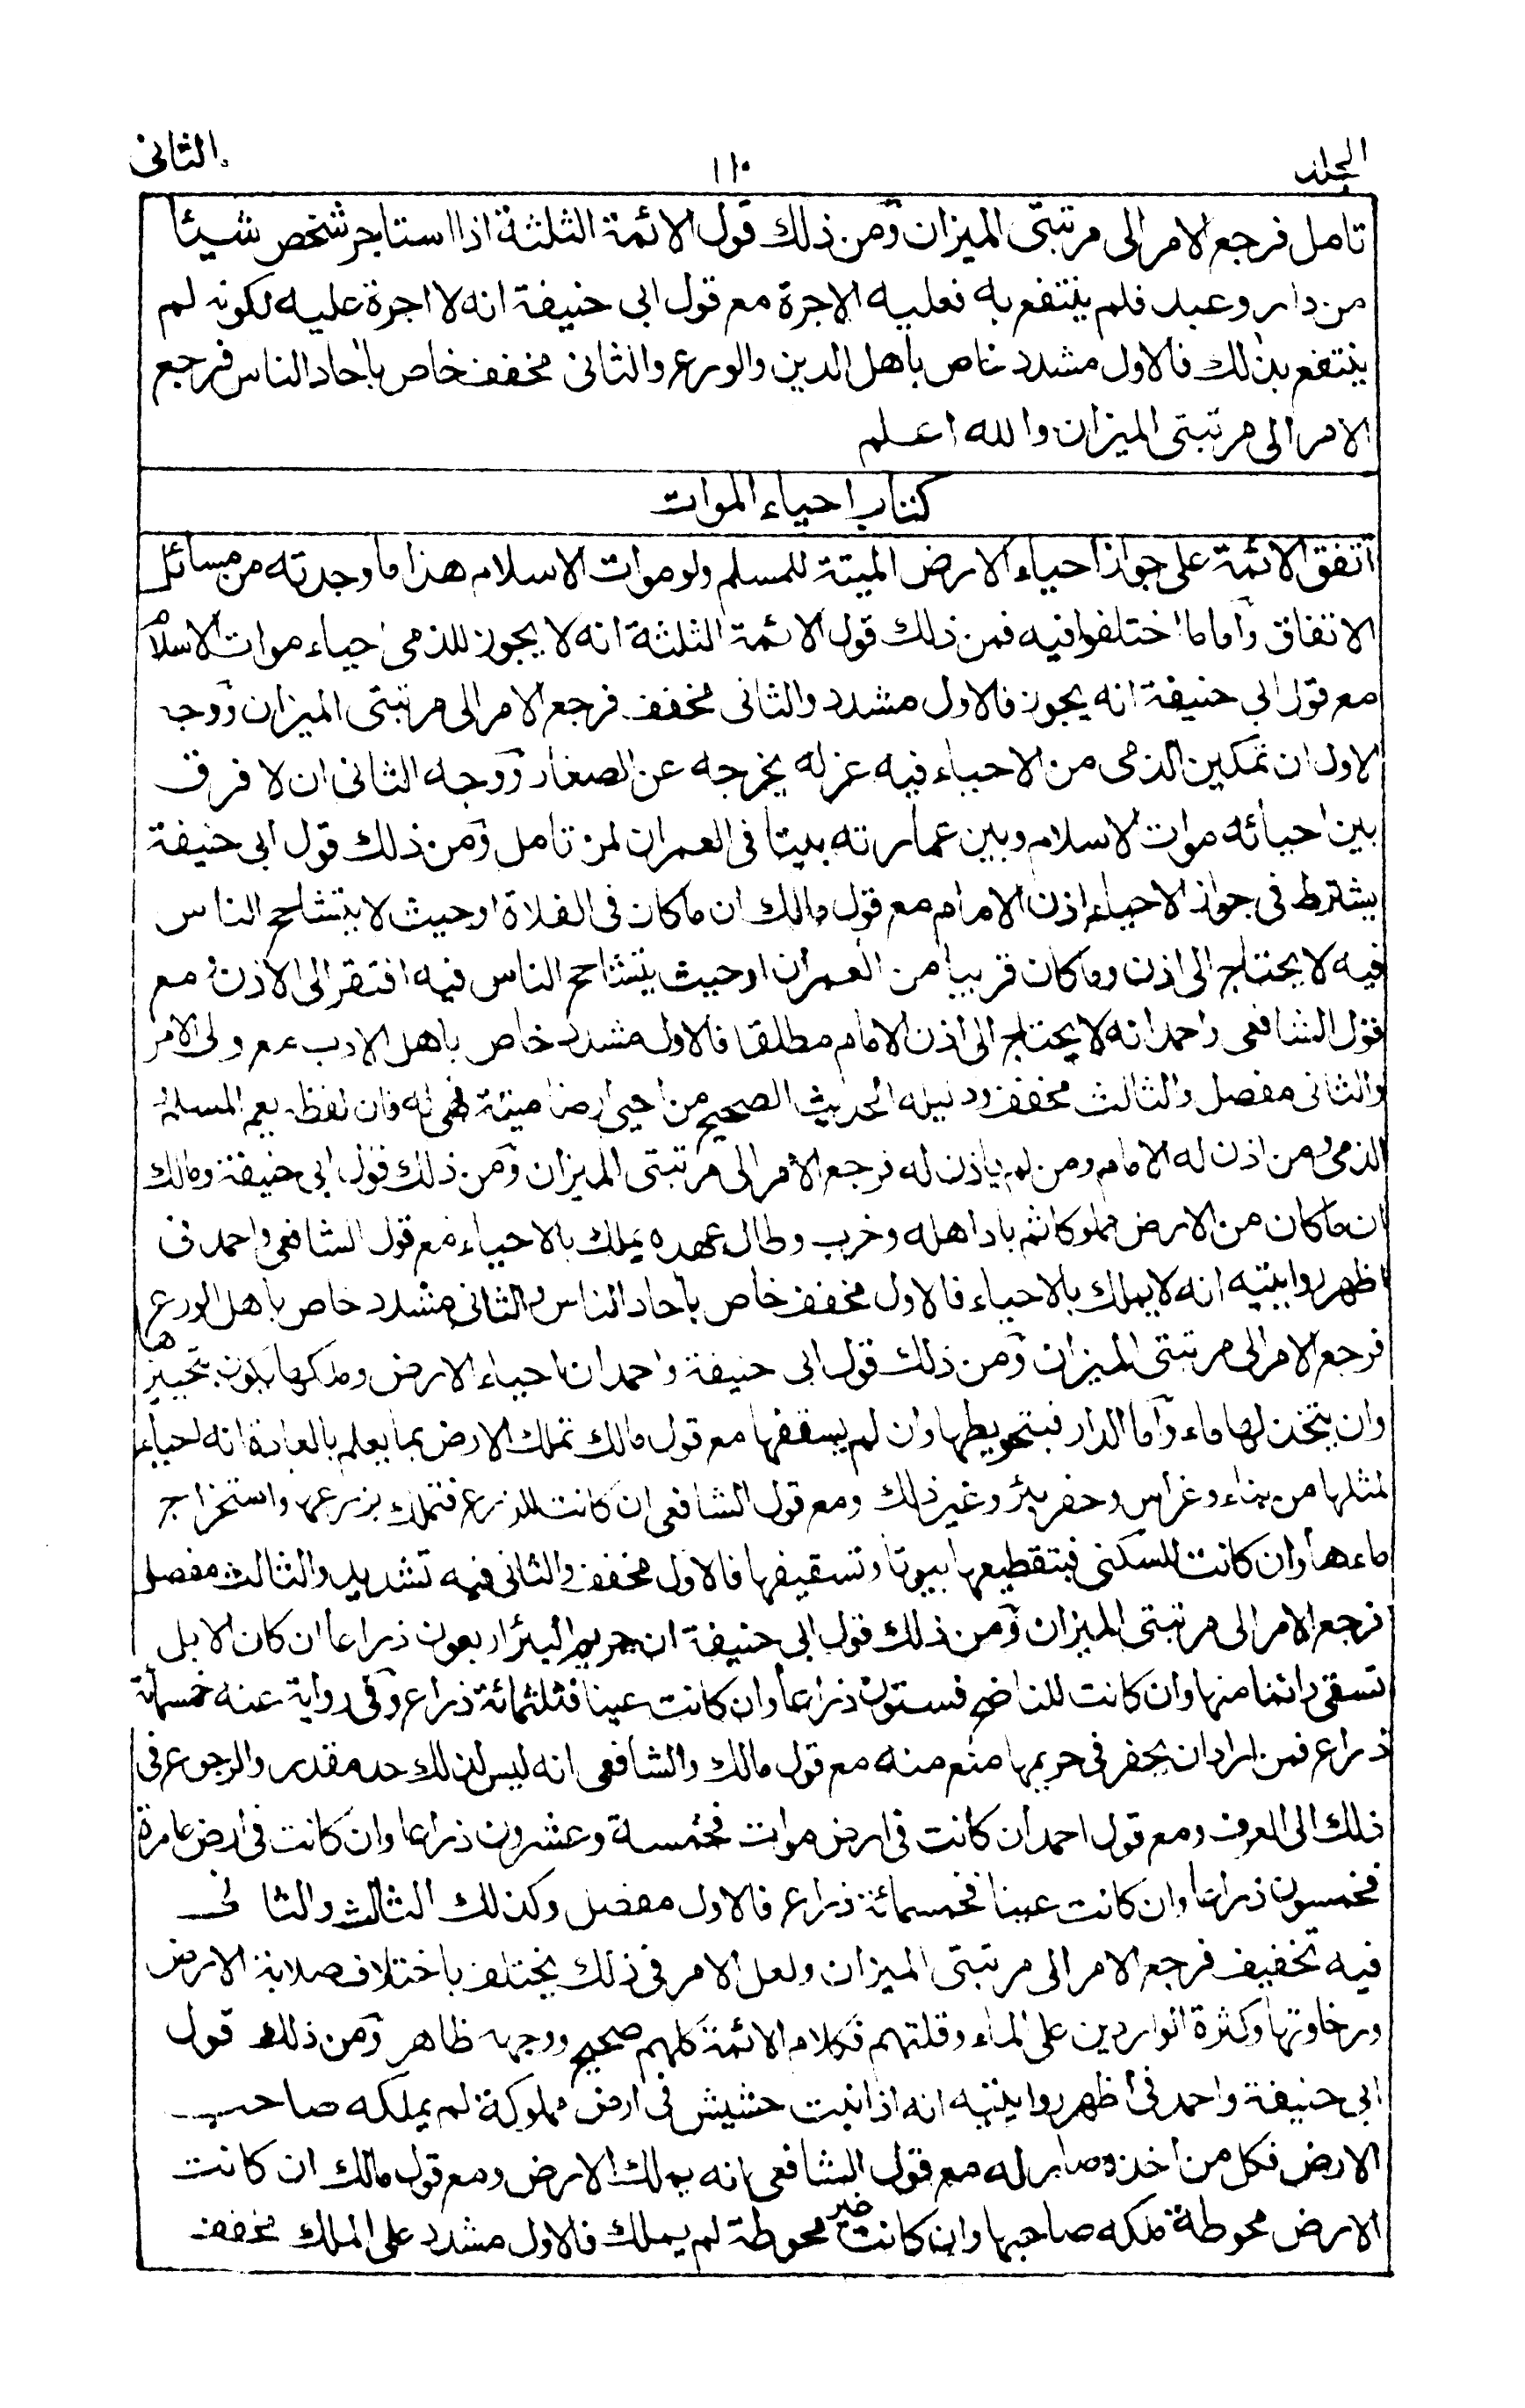 المجلد ١١٠ الثانى
تامل فرجع الامر الى مرتبتى الميزان ومن ذلك قول الائمة الثلثة اذا استاجر شخص شيئا
من دار وعبد فلم ينتفع به فعليه الاجرة مع قول ابى حنيفة انه لا اجرة عليه لكونه لم
ينتفع بذلك فالاول مشدد خاص باهل الدين والورع والثانى مخفف خاص باحاد الناس فرجع
الامر الى مرتبتى الميزان والله اعلم
كتاب احياء الموات
اتفق الائمة على جواز احياء الارض الميتة للمسلم ولو موات الاسلام هذا ما وجدته من مسائل
الاتفاق واما ما اختلفوا فيه فمن ذلك قول الائمة الثلثة انه لا يجوز للذمى احياء موات الاسلام
مع قول ابي حنيفة انه يجوز فالاول مشدد والثانى مخفف فرجع الامر الى مرتبتى الميزان ووجه
الاول ان تمكين الذمى من الاحياء فيه عزله يخرجه عن الصغار ووجه الثانى ان لا فرق
بين احيائه موات الاسلام وبين عمارته بيتا فى العمران لمن تامل ومن ذلك قول ابى حنيفة
يشترط فى جواز الاحياء اذن الامام مع قول مالك ان ما كان فى الفلاة او حيث لا يتشاحح الناس
فيه لا يحتاج الى اذن وما كان قريبا من العمران او حيث يتشاحح الناس فيه افتقر الى الاذن مع
قول الشافعى واحمد انه لا يحتاج الى اذن الامام مطلقا فالاول مشدد خاص باهل الادب مع ولى الامر
والثانى مفصل والثالث مخفف ودليله الحديث الصحيح من احيى ارضا ميتة فهى له فان لفظه يعم المسلم
الذمى ومن اذن له الامام ومن لم ياذن له فرجع الامر الى مرتبتى الميزان ومن ذلك قول ابى حنيفة ومالك
ان ما كان من الارض مملوكا ثم باد اهله وخرب وطال عهده يملك بالاحياء مع قول الشافعى واحمد فى
اظهر روايتيه انه لا يملك بالاحياء فالاول مخفف خاص بآحاد الناس والثانى مشدد خاص باهل الورع
فرجع الامر الى مرتبتى الميزان ومن ذلك قول ابى حنيفة واحمد ان احياء الارض وملكها يكون بتحييزها
وان يتخذ لها ماء واما الدار فبتحويطها وان لم يسقفها مع قول مالك تملك الارض بما يعلم بالعادة انه احياء
لمثلها من بناء وغراس وحفر بئر وغير ذلك ومع قول الشافعى ان كانت للزرع فتملك بزرعها واستخراج
ماءها وان كانت للسكنى فبتقطيعها بيوتا وتسقيفها فالاول مخفف والثانى فيه تشديد والثالث مفصل
فرجع الامر الى مرتبتى الميزان ومن ذلك قول ابى حنيفة ان حريم البئر اربعون ذراعا ان كان الابل
تسقى دائما منها وان كانت للناضح فستون ذراعا وان كانت عينا فثلثمائة ذراع وفى رواية عنه خمسمائة
ذراع فمن اراد ان يحفر فى حريمها منع منه مع قول مالك والشافعى انه ليس لذلك حد مقدر والرجوع فى
ذلك الى العرف ومع قول احمد ان كانت فى ارض موات فخمسة وعشرون ذراعا وان كانت فى ارض عامرة
فخمسون ذراعا وان كانت عينا فخمسمائة ذراع فالاول مفصل وكذلك الثالث والثانى
فيه تخفيف فرجع الامر الى مرتبتى الميزان ولعل الامر فى ذلك يختلف باختلاف صلابة الارض
ورخاوتها وكثرة الواردين على الماء وقلتهم فكلام الائمة كلهم صحيح ووجهه ظاهر ومن ذلك قول
ابى حنيفة واحمد فى اظهر روايتيه انه اذا نبت حشيش فى ارض مملوكة لم يملكه صاحب
الارض فكل من اخذه صار له مع قول الشافعى انه يملك الارض ومع قول مالك ان كانت
الارض محوطة ملكه صاحبها وان كانت غير محوطة لم يملك فالاول مشدد على المالك مخفف